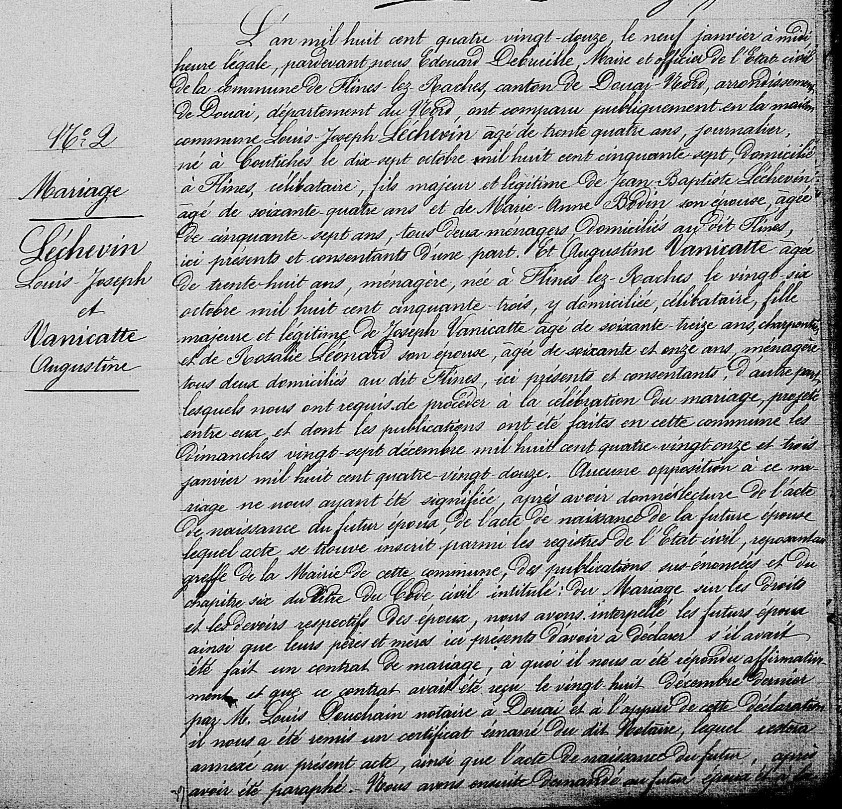 Nº 2
Mariage
Léchevin
Louis-Joseph
et
Vanicatte
Augustine
L'an mil huit cent quatre vingt-douze, le neuf janvier à midi
heure légale, pardevant nous Edouard Debruille, Maire et officier de l'Etat civil
de la commune de Flines-lez-Raches, canton de Douai-Nord, arrondissement
de Douai, département du Nord, ont comparu publiquement en la maison
commune Louis-Joseph Léchevin âgé de trente quatre ans, journalier,
né à Coutiches le dix-sept octobre mil huit cent cinquante-sept, domicilié
à Flines, célibataire, fils majeur et légitime de Jean-Baptiste Léchevin
âgé de soixante-quatre ans et de Marie-Anne Bodin son épouse, âgée
de cinquante-sept ans, tous deux ménagers domiciliés au dit Flines,
ici présents et consentants d'une part. Et Augustine Vanicatte âgée
de trente-huit ans, ménagère, née à Flines lez-Raches le vingt-six
octobre mil huit cent cinquante-trois, y domiciliée, célibataire, fille
majeure et légitime de Joseph Vanicatte âgé de soixante-treize ans,
et de Rosalie Léonard son épouse, âgée de soixante et onze ans, ménagère
tous deux domiciliés au dit Flines, ici présents et consentants, d'autre part,
lesquels nous ont requis de procéder à la célébration du mariage projeté
entre eux, et dont les publications ont été faites en cette commune les
dimanches vingt-sept décembre mil huit cent quatre-vingt-onze et trois
janvier mil huit cent quatre-vingt douze. Aucune opposition à ce ma-
riage ne nous ayant été signifiée, après avoir donné lecture de l'acte
de naissance du futur époux, de l'acte de naissance de la future épouse
lequel acte se trouve inscrit parmi les registres de l'Etat civil, reposant au
greffe de la Mairie de cette commune, des publications sus-énoncées et du
chapitre six du titre du Code civil intitulé: du Mariage sur les droits
et les devoirs respectifs des époux, nous avons interpellé les futurs époux
ainsi que leurs pères et mères ici présents d'avoir à déclarer s'il avait
été fait un contrat de mariage, à quoi il nous a été répondu affirmative-
ment, et que ce contrat avait été reçu le vingt huit décembre dernier
par M. Louis Pouchain notaire à Douai et à l'appui de cette déclaration
il nous a été remis un certificat émané du dit Notaire, lequel restera
annexé au présent acte, ainsi que l'acte de naissance du futur, après
avoir été paraphé. Nous avons ensuite demandé au futur époux et